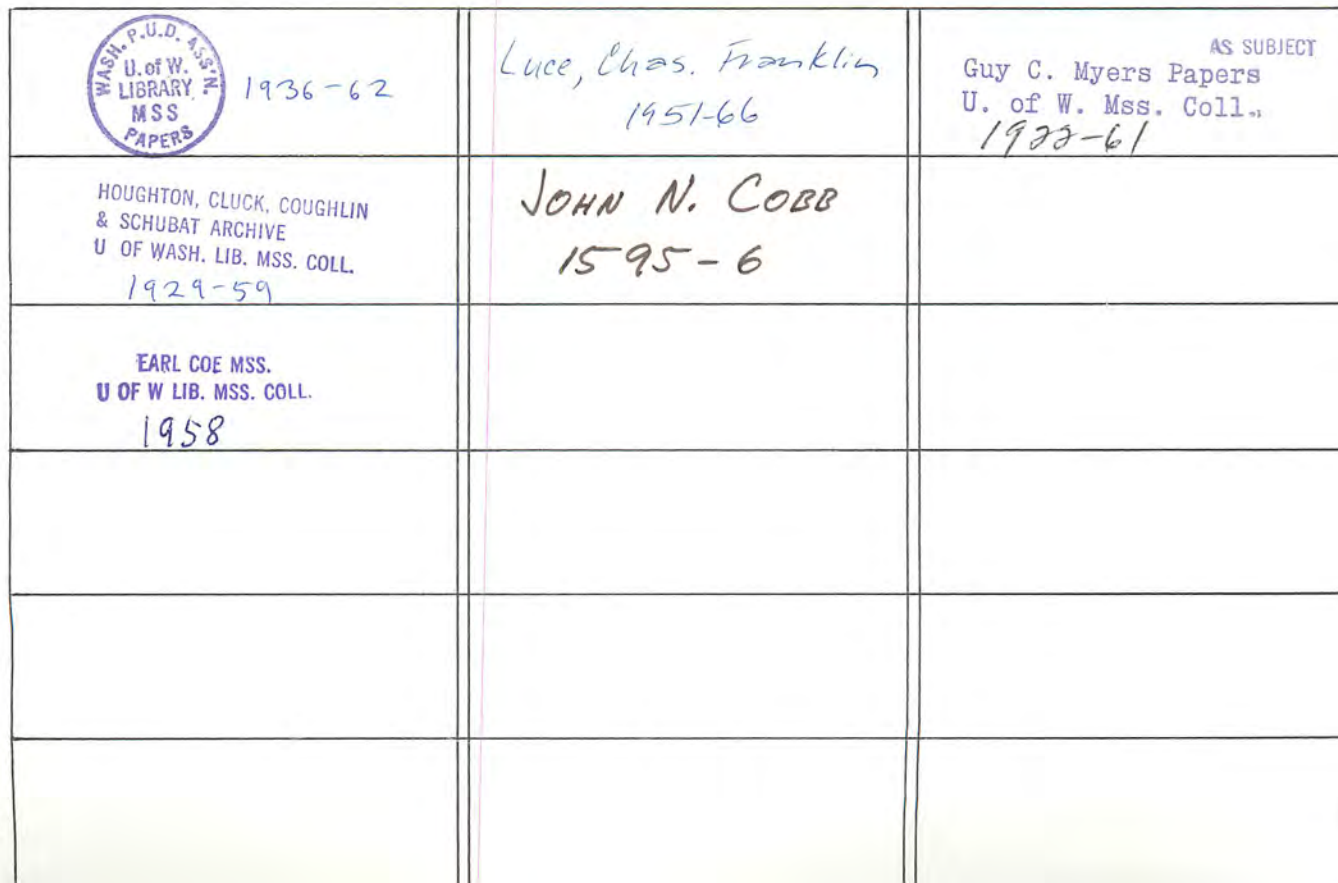 WASH. P.U.D. ASS'N.
U. of W.
LIBRARY
MSS
PAPERS
1936-62
Luce, Chas. Franklin
1951-66
AS SUBJECT
Guy C. Myers Papers
U. of W. Mss. Coll.
1922-61
HOUGHTON, CLUCK, COUGHLIN
& SCHUBAT ARCHIVE
U OF WASH. LIB. MSS. COLL.
1929-59
JOHN N. COBB
1595-6
EARL COE MSS.
U OF W LIB. MSS. COLL.
1958